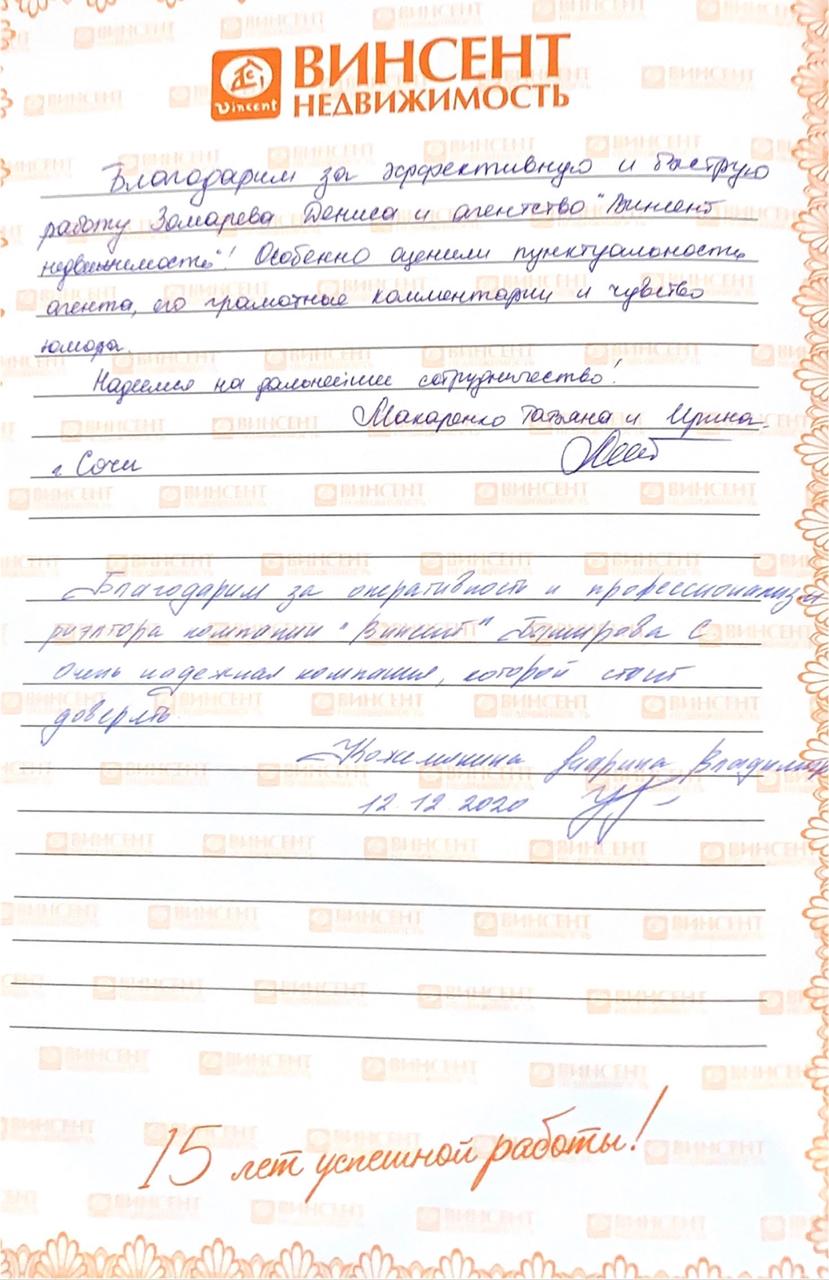 Vincent
ВИНСЕНТ
НЕДВИЖИМОСТЬ
Благодарим за эффективную и быструю
работу Замарева Дениса и агентство "Винсент
недвижимость"! Особенно оценили пунктуальность
агента, его грамотные комментарии и чувство
юмора.
Надеемся на дальнейшее сотрудничество!
Макаренко Татьяна и Ирина.
г. Сочи
Благодарим за оперативность и профессионализм
риэлтора компании "Винсент" С
Очень надежная компания, которой стоит
доверять.
Кожемякина
12.12.2020
15 лет успешной работы!